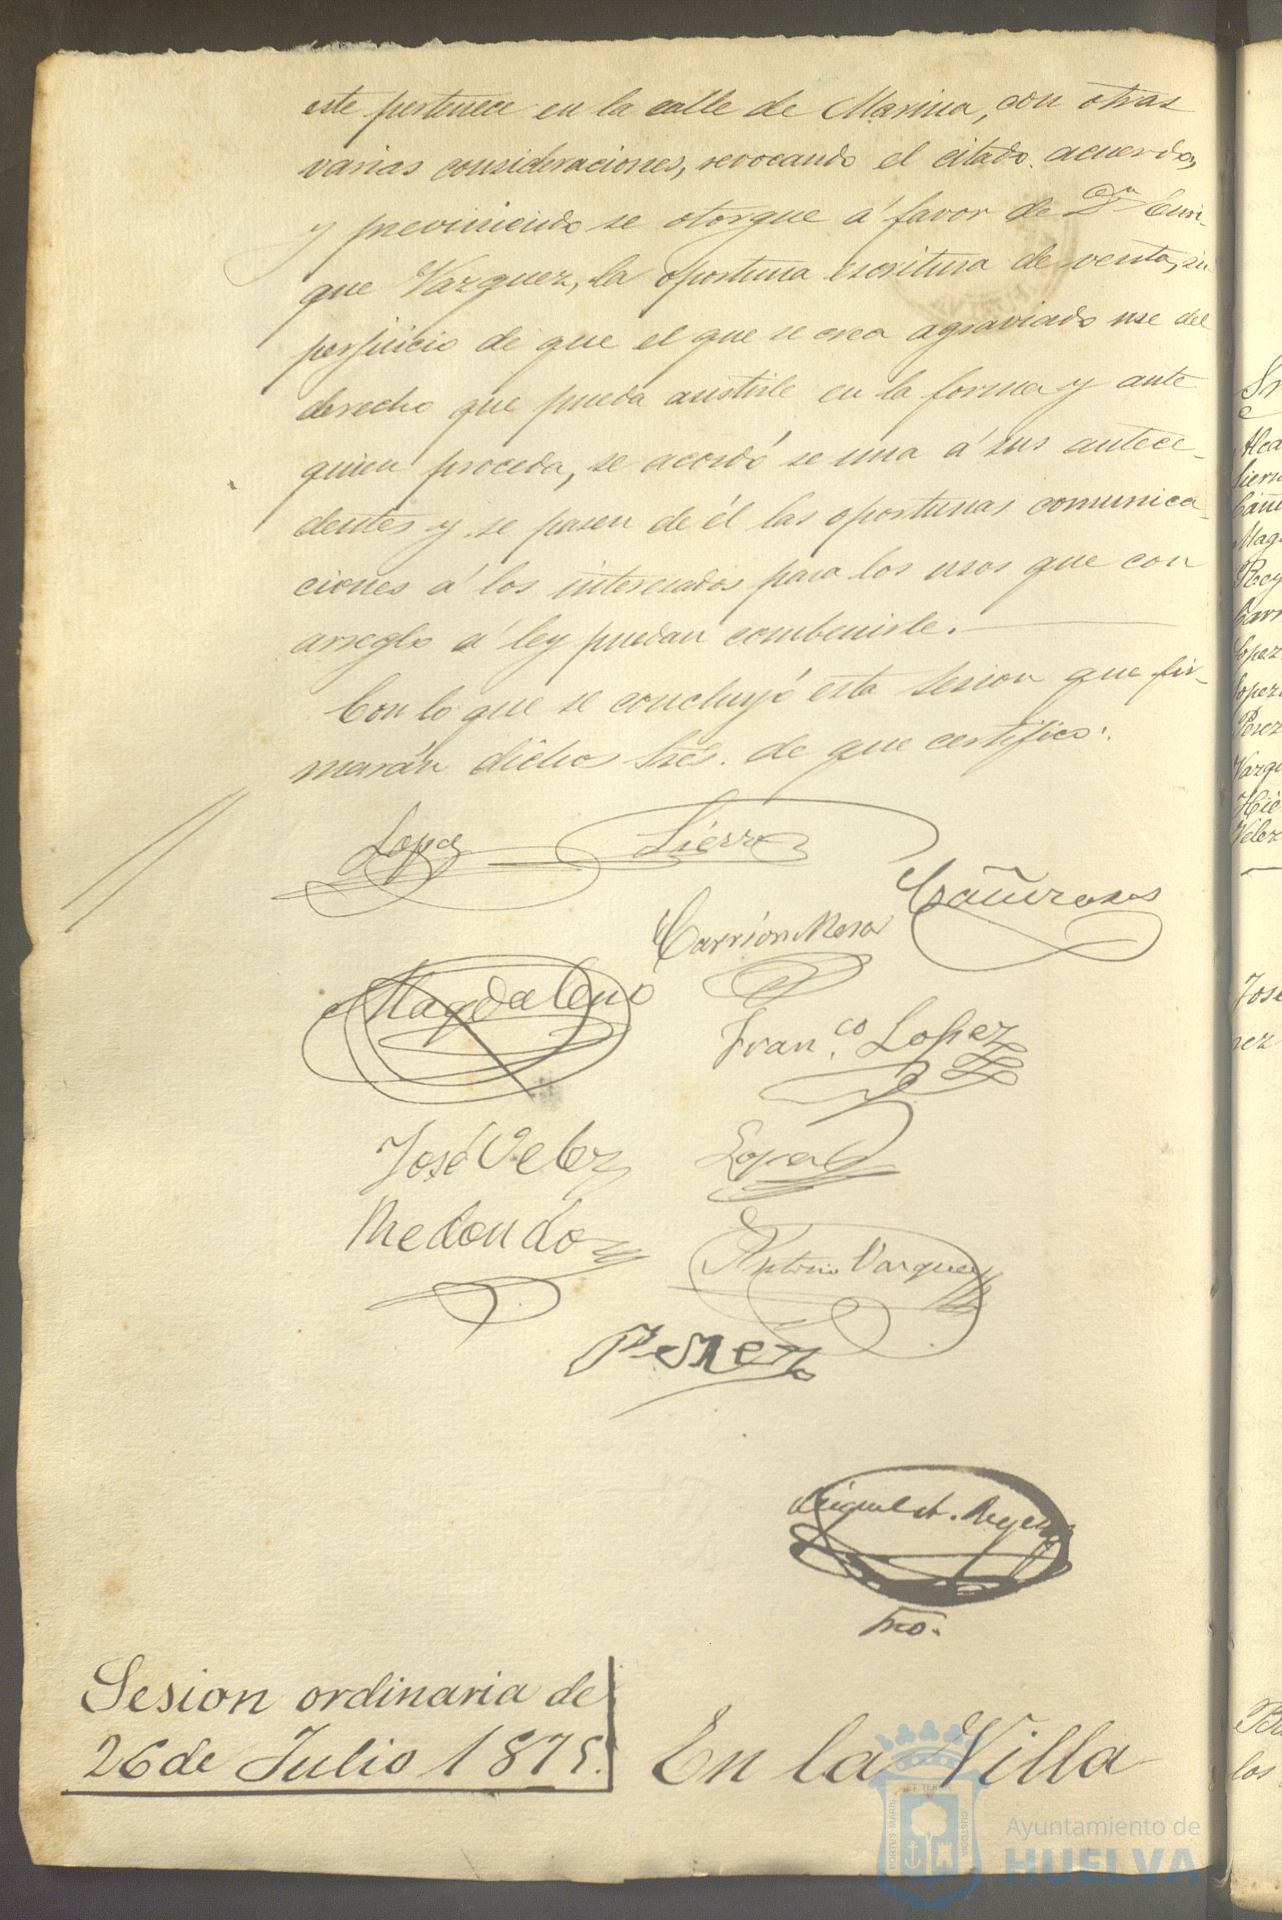 este pertenece en la calle de Marina, con otras
varias consideraciones, revocando el citado acuerdo,
y previniendo se otorgue á favor de Dn Enri-
que Vazquez, la oportuna escritura de venta, sin
perjuicio de que el que se crea agraviado use del
derecho que pueda asistirle en la forma y ante
quien proceda, se acordó se una á sus antece-
dentes y se pasen de él las oportunas comunica-
ciones á los interesados para los usos que con
arreglo á ley puedan combenirle.
Con lo que se concluyó esta sesion que fir-
marán dichos Sres. de que certifico.
Lopez Sierra
Cañizares
Carrion Mesa
Magdaleno
Fran.co Lopez
José Velez
Lopez
Redondo
Antonio Vazquez
Perez
Srio.
Sesion ordinaria de
26 de Julio 1875.
En la Villa
PORTUS MARIS ET TERRAE CUSTODIA
Ayuntamiento de
HUELVA
Alca
Mag
Rey
Carr
Lopez
Lopez
Perez
Vazqu
Velez
José
nez
los